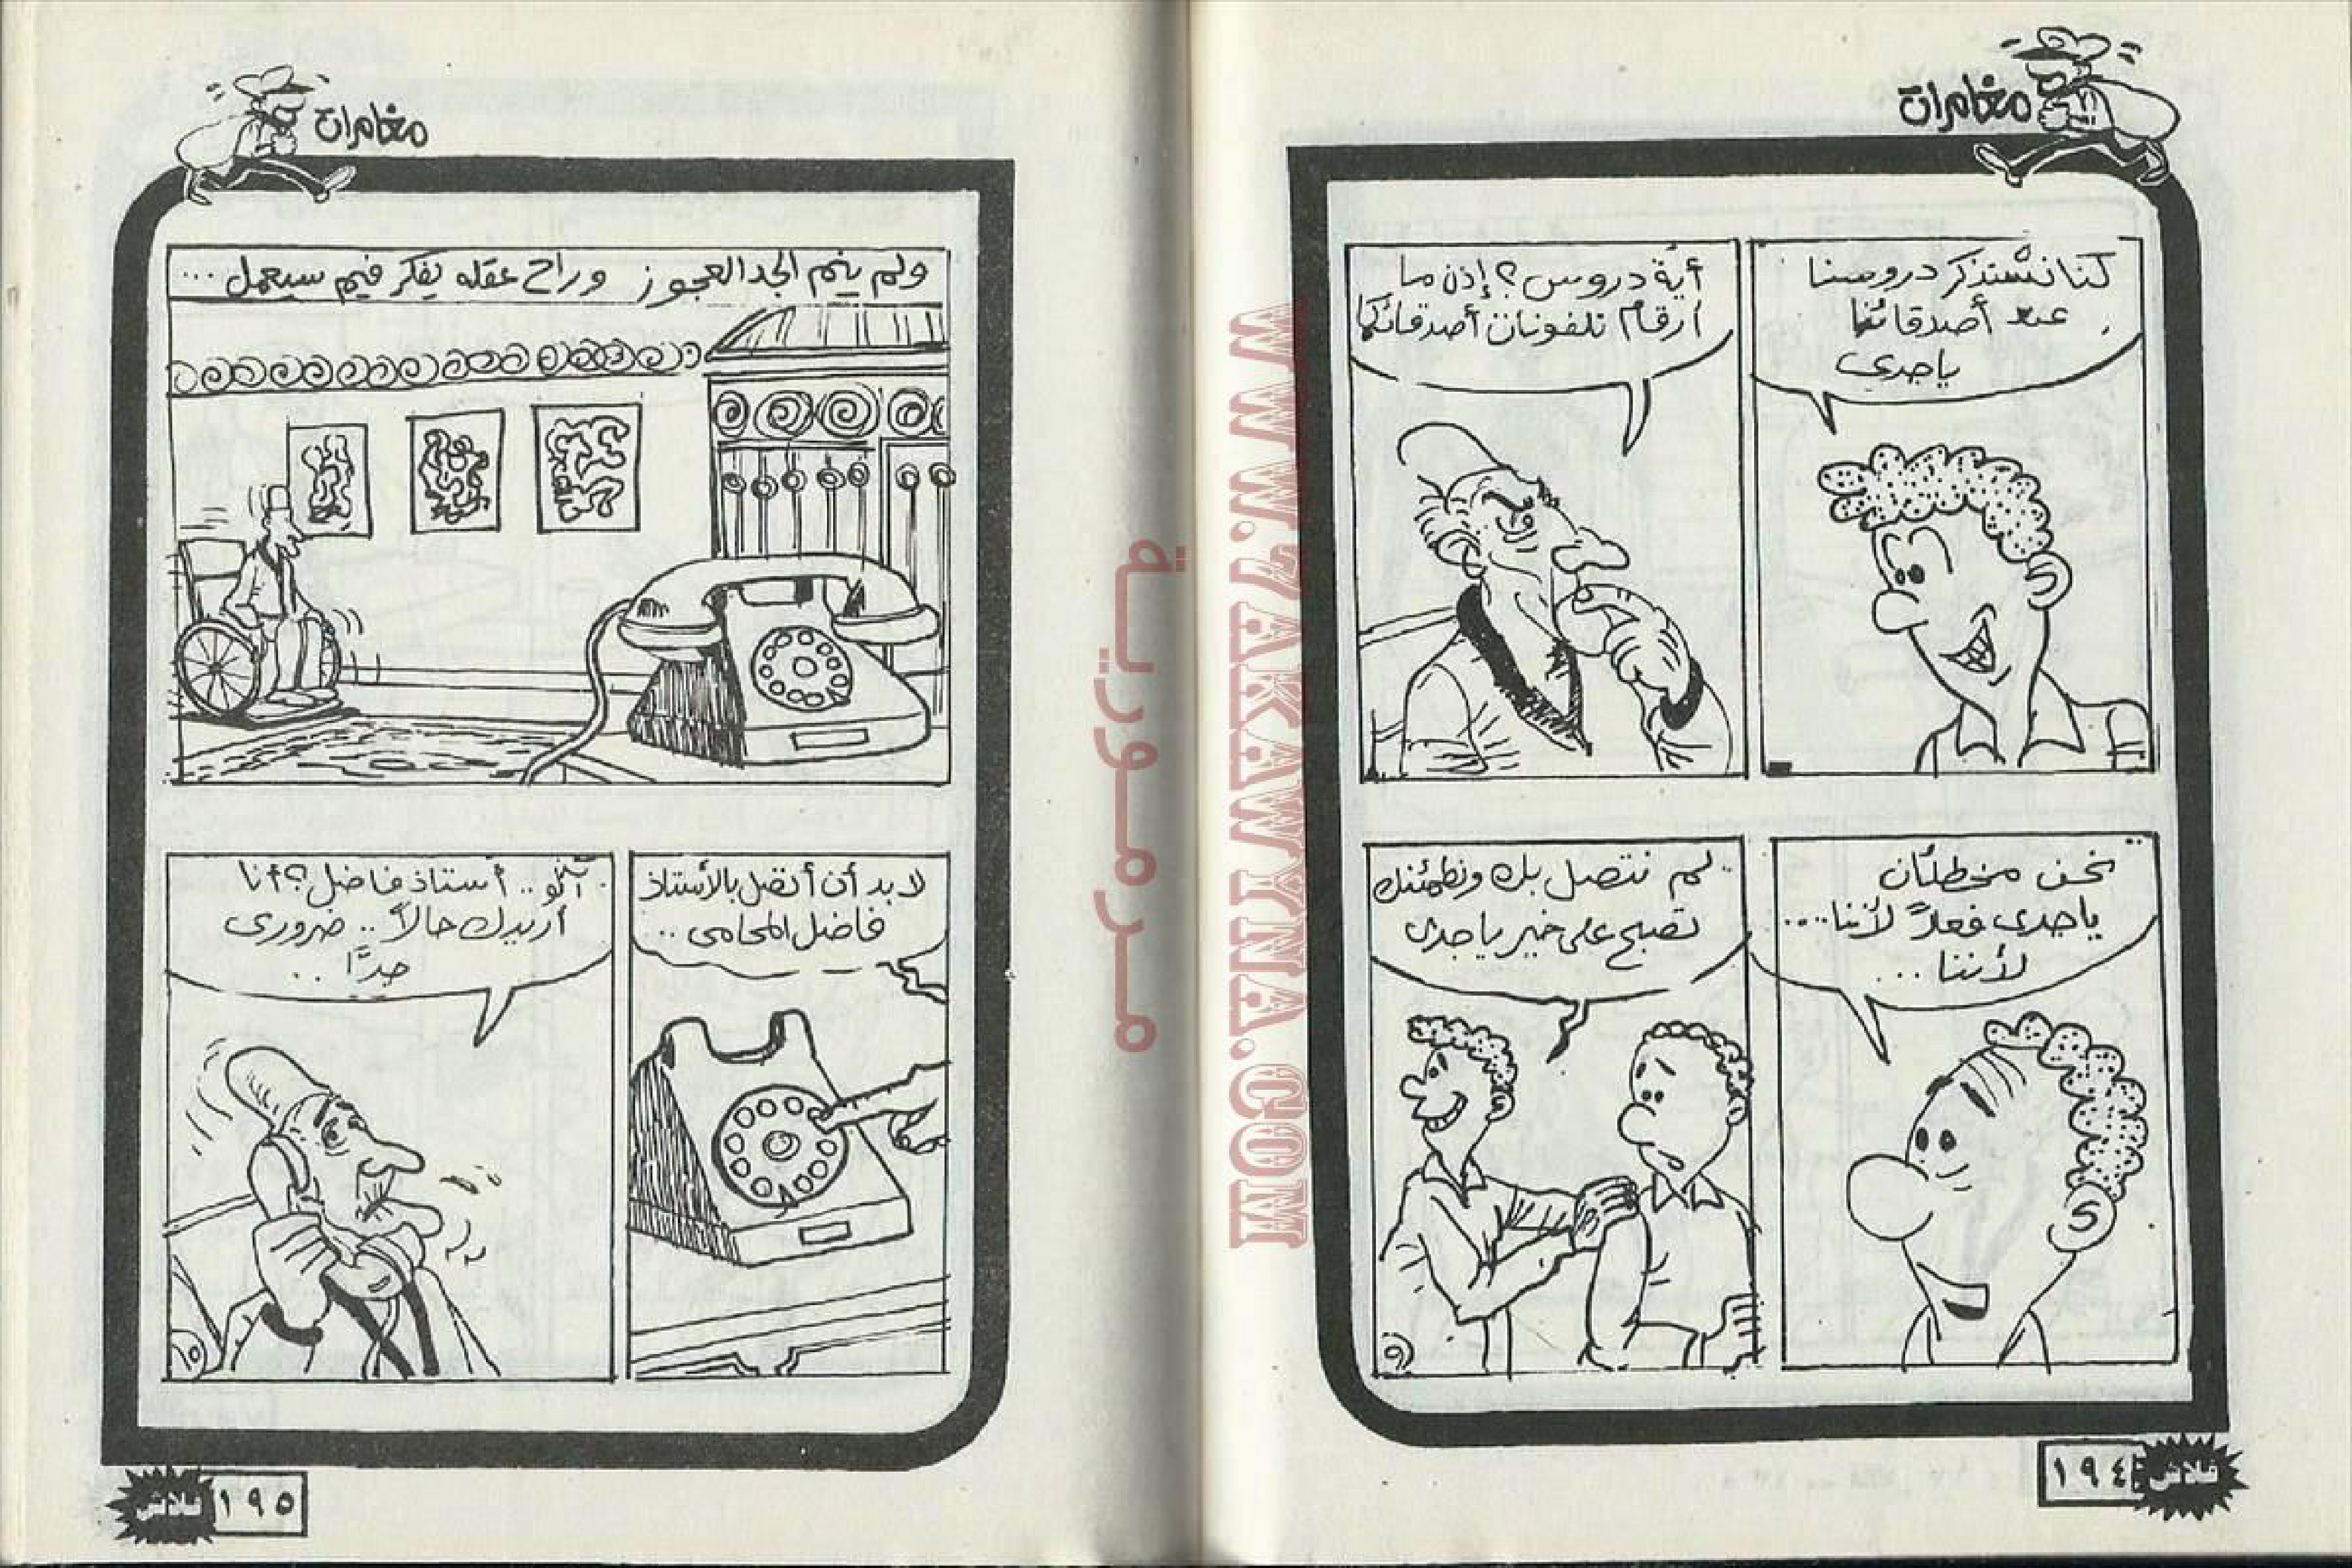 مغامرات
كنا نستذكر دروسنا
عند أصدقائنا
يا جدى
أية دروس؟ إذن ما
أرقام تلفونات أصدقائكما
نحن مخطئان
يا جدى فعلاً لأننا....
لأننا...
لم نتصل بك ونطمئنك
تصبح على خير يا جدى
فلاش
١٩٤
مغامرات
ولم ينم الجد العجوز وراح عقله يفكر فيم سيعمل...
لابد أن أتصل بالأستاذ
فاضل المحامى..
ألو.. أستاذ فاضل؟ أنا
أريدك حالاً.. ضرورى
جدًا..
فلاش
١٩٥
WWW.7AKAWYNA.COM
مرمورية